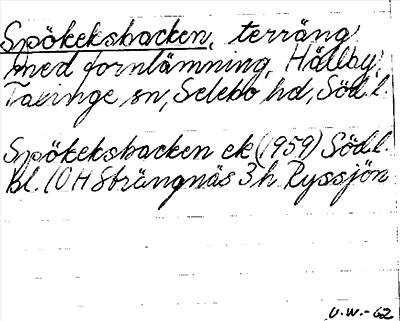 Spökeksbacken, terräng
med fornlämning, Hällby,
Taxinge sn, Selebo hd, Söd. l.
Spökeksbacken ek (1959) Söd. l.
Bl. 10 H Strängnäs 3 h Ryssjön
U.W.-62